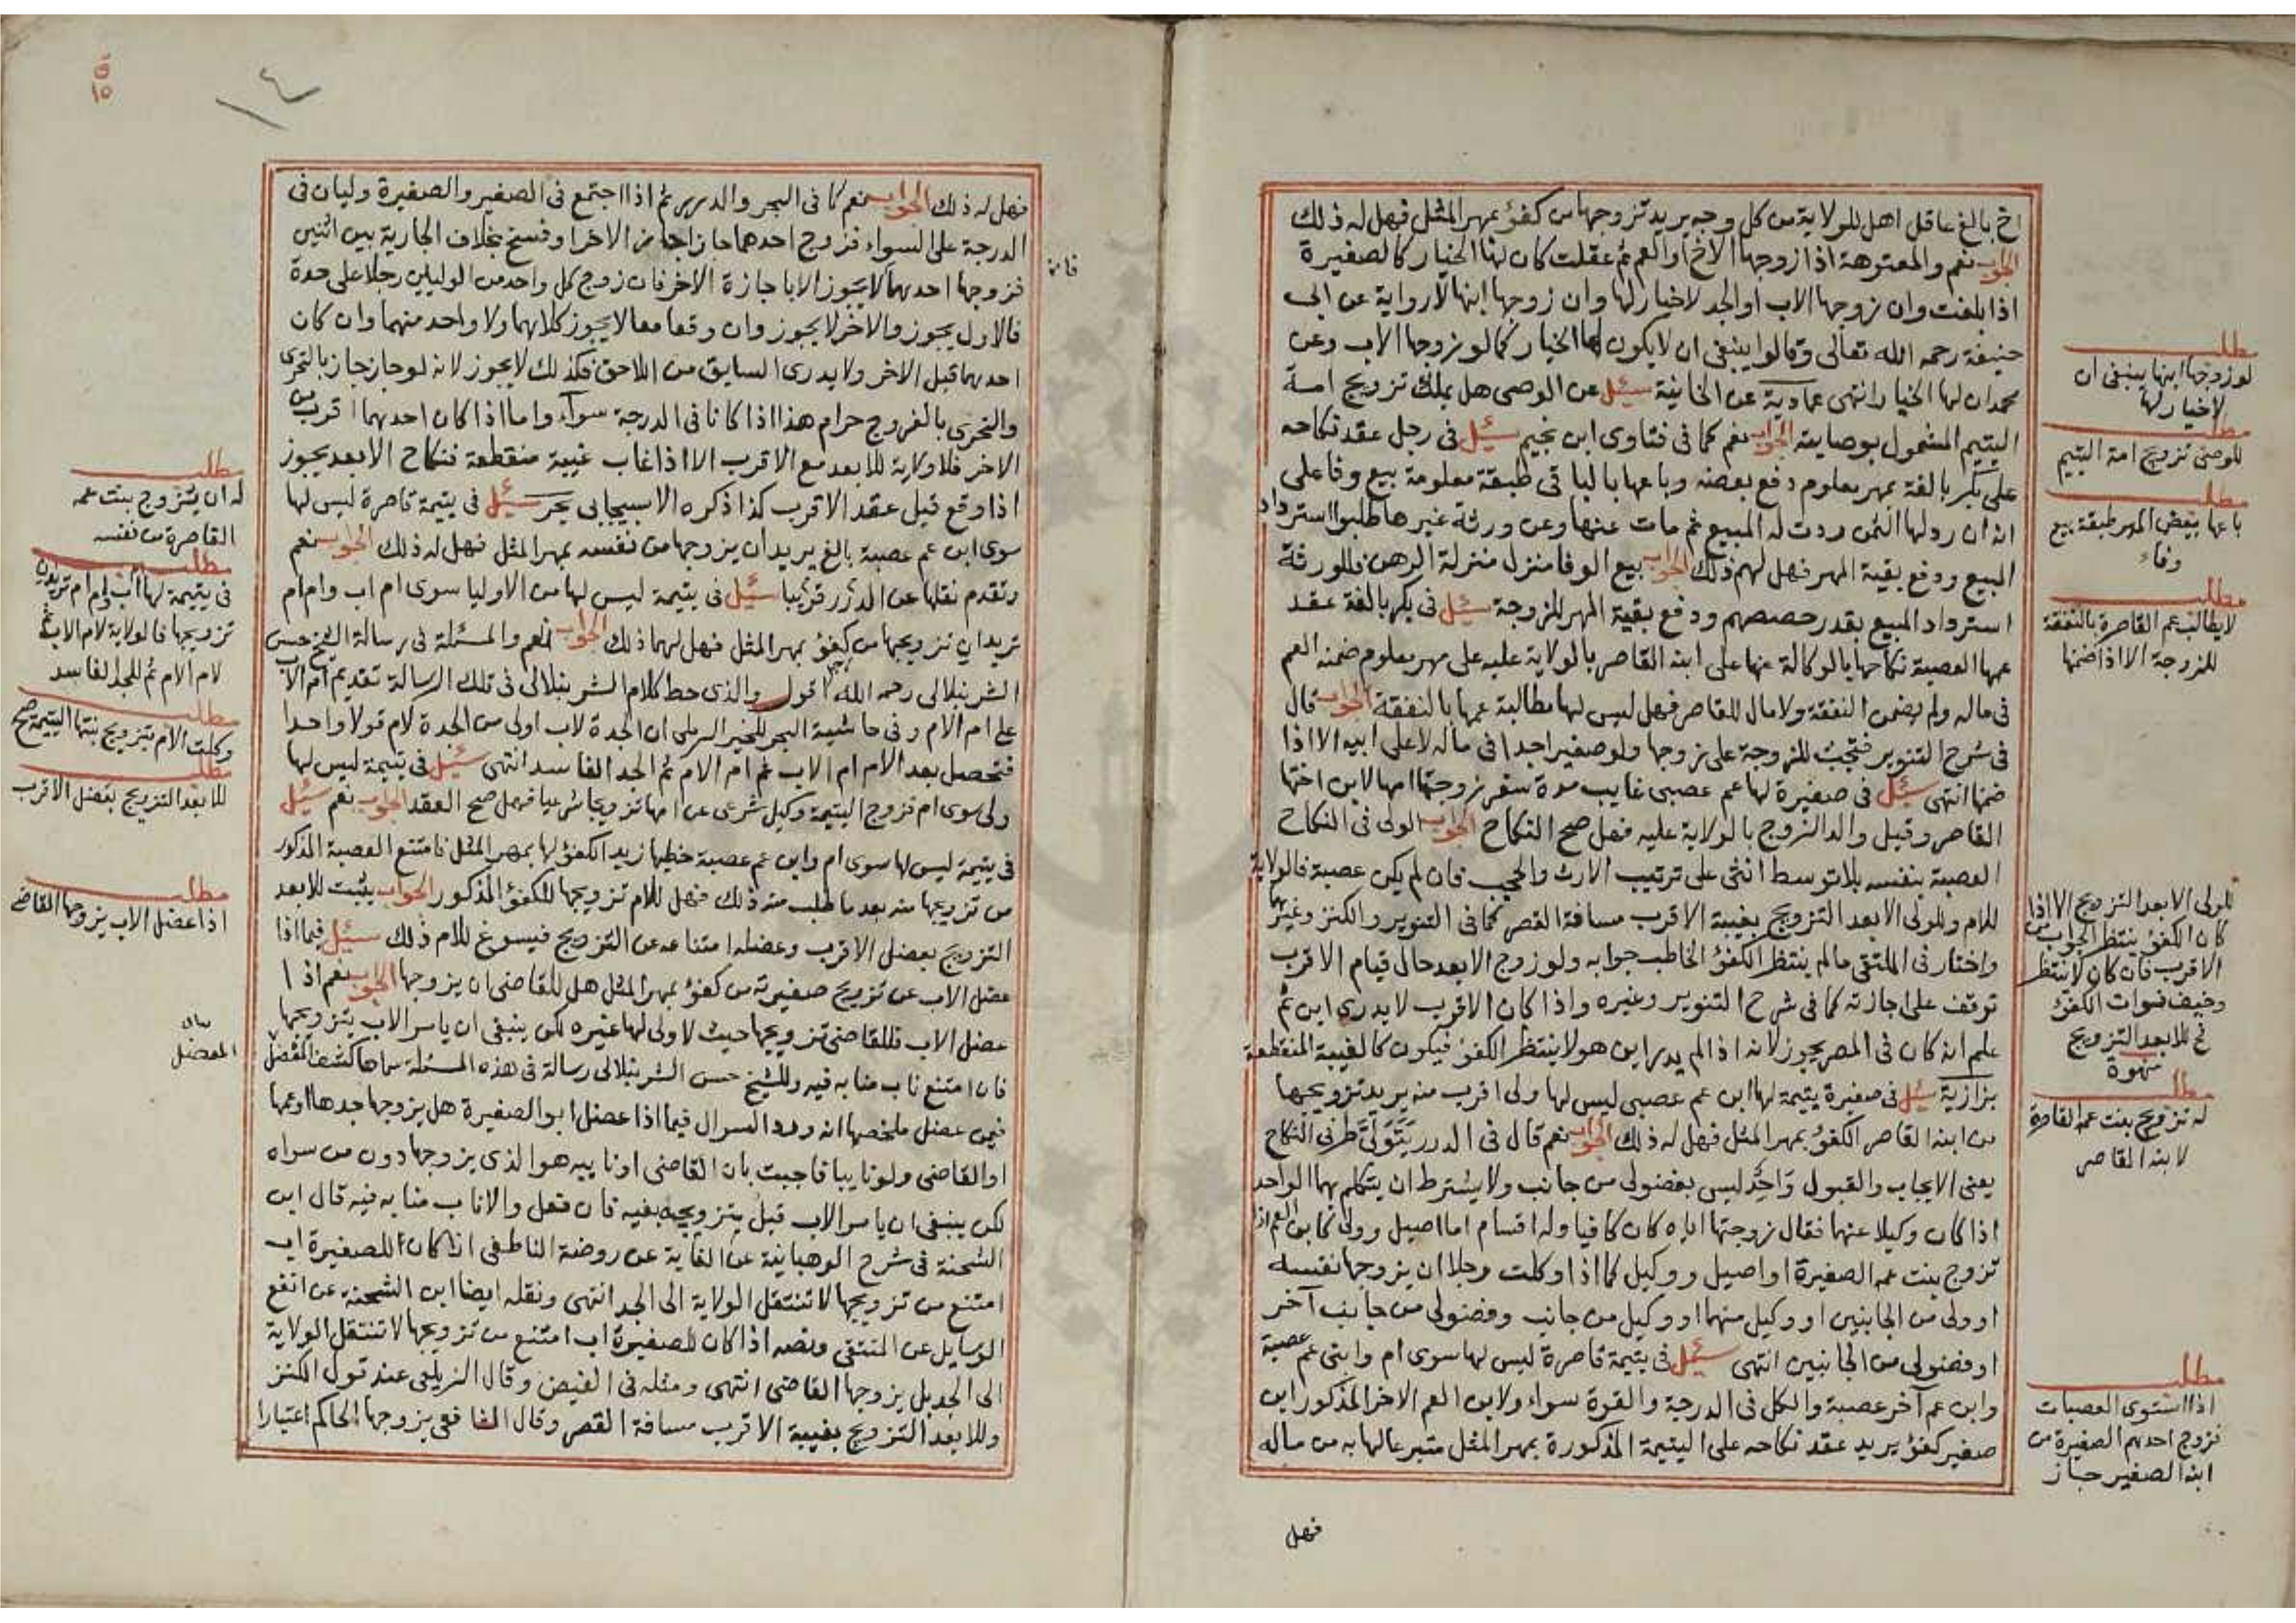 اخ بالغ عاقل اهل للولاية من كل وجه يريد تزوجها من كفؤ بمهر المثل فهل له ذلك
الجواب نعم والمعتوهة اذا زوجها الاخ او العم ثم عقلت كان لها الخيار كالصغيرة
اذا بلغت وان زوجها الاب او الجد لا خيار لها وان زوجها ابنها لا رواية عن ابي
حنيفة رحمه الله تعالى وقالوا ينبغي ان لا يكون لها الخيار كما لو زوجها الاب وعن
محمد ان لها الخيار انتهى عمادية عن الخانية سئل عن الوصي هل يملك تزويج امة
اليتيم المشمول بوصايته الجواب نعم كما في فتاوى ابن نجيم سئل في رجل عقد نكاحه
على بكر بالغة بمهر معلوم دفع بعضه وباعها بالباقي طبقة معلومة بيع وفا على
انه ان رد لها الثمن ردت له المبيع ثم مات عنها وعن ورثة غيرها طلبوا استرداد
المبيع ودفع بقية المهر فهل لهم ذلك الجواب بيع الوفا منزل منزلة الرهن فللورثة
استرداد المبيع بقدر حصصهم ودفع بقية المهر للزوجة سئل في بكر بالغة عقد
عمها العصبة نكاحها بالوكالة عنها على ابنه القاصر بالولاية عليه على مهر معلوم ضمنه العم
في ماله ولم يضمن النفقة ولا مال للقاصر فهل ليس لها مطالبة عمها بالنفقة الجواب قال
في شرح التنوير فتجب للزوجة على زوجها ولو صغيرا جدا في ماله لا على ابيه الا اذا
ضمنها انتهى سئل في صغيرة لها عم عصبي غايب مدة سفر زوجتها امها لابن اختها
القاصر وقبل والد الزوج بالولاية عليه فهل صح النكاح الجواب الولي في النكاح
العصبة بنفسه بلا توسط انثى على ترتيب الارث والحجب فان لم يكن عصبة فالولاية
للام وللولي الابعد التزويج بغيبة الاقرب مسافة القصر كما في التنوير والكنز وغيرهما
واختار في الملتقى مالم ينتظر الكفؤ الخاطب جوابه ولو زوج الابعد حال قيام الاقرب
توقف على اجازته كما في شرح التنوير وغيره واذا كان الاقرب لا يدري اين ثم
علم انه كان في المصر يجوز لانه اذا لم يدر اين هو لا ينتظر الكفؤ فيكون كالغيبة المنقطعة
بزازية سئل في صغيرة يتيمة لها ابن عم عصبي ليس لها ولي اقرب منه يريد تزويجها
من ابنه القاصر الكفؤ بمهر المثل فهل له ذلك الجواب نعم قال في الدرر يتولى طرفي النكاح
يعني الايجاب والقبول واحد ليس بفضولي من جانب ولا يشترط ان يتكلم بهما الواحد
اذا كان وكيلا عنهما فقال زوجتها اياه كان كافيا وله اقسام اما اصيل وولي كابن العم اذا
تزوج بنت عمه الصغيرة او اصيل ووكيل كما اذا وكلت رجلا ان يزوجها نفسه
او ولي من الجانبين او وكيل منهما او وكيل من جانب وفضولي من جانب آخر
او فضولي من الجانبين انتهى سئل في يتيمة قاصرة ليس لها سوى ام وابني عم عصبة
وابن عم آخر عصبة والكل في الدرجة والقوة سواء ولابن العم الاخر المذكور ابن
صغير كفؤ يريد عقد نكاحه على اليتيمة المذكورة بمهر المثل متبرعا لها به من ماله
فهل
مطلب
لو زوجها ابنها ينبغي ان
لا خيار لها
مطلب
للوصي تزويج امة اليتيم
مطلب
باعها ببعض المهر طبقة بيع
وفاء
مطلب
لا يطالب عم القاصرة بالنفقة
للزوجة الا اذا ضمنها
للولي الابعد التزويج الا اذا
كان الكفؤ ينتظر الجواب من
الاقرب فان كان لا ينتظر
وخيف فوات الكفؤ
للابعد التزويج
مطلب
له تزويج بنت عمه القاصرة
لابنه القاصر
مطلب
اذا استوى العصبات
فزوج احدهم الصغيرة من
ابنه الصغير جاز
١٤
فهل له ذلك الجواب نعم كما في البحر والدرر ثم اذا اجتمع في الصغير والصغيرة وليان في
الدرجة على السواء فزوج احدهما جاز اجاز الاخر او فسخ بخلاف الجارية بين اثنين
فزوجها احدهما لا يجوز الا باجازة الاخر فان زوج كل واحد من الوليين رجلا على حدة
فالاول يجوز والاخر لا يجوز وان وقعا معا لا يجوز كلاهما ولا واحد منهما وان كان
احدهما قبل الاخر ولا يدرى السابق من اللاحق فكذلك لا يجوز لانه لو جاز جاز بالتحري
والتحري بالفروج حرام هذا اذا كانا في الدرجة سواء واما اذا كان احدهما اقرب من
الاخر فلا ولاية للابعد مع الاقرب الا اذا غاب غيبة منقطعة فنكاح الابعد يجوز
اذا وقع قبل عقد الاقرب كذا ذكره الاسبيجابي بحر سئل في يتيمة قاصرة ليس لها
سوى ابن عم عصبة بالغ يريد ان يزوجها من نفسه بمهر المثل فهل له ذلك الجواب نعم
وتقدم نقلها عن الدرر قريبا سئل في يتيمة ليس لها من الاوليا سوى ام اب وام ام
تريدان تزويجها من كفؤ بمهر المثل فهل لهما ذلك الجواب نعم والمسئلة في رسالة الشيخ حسن
الشرنبلالي رحمه الله اقول والذي حط كلام الشرنبلالي في تلك الرسالة تقديم ام الاب
على ام الام وفي حاشية البحر للخير الرملي ان الجدة لاب اولى من الجدة لام قولا واحدا
فتحصل بعد الام ام الاب ثم ام الام ثم الجد الفاسد انتهى سئل في يتيمة ليس لها
ولي سوى ام فزوج اليتيمة وكيل شرعي عن امها تزويجا شرعيا فهل صح العقد الجواب نعم سئل
في يتيمة ليس لها سوى ام وابن عم عصبة خطبها زيد الكفؤ لها بمهر المثل فامتنع العصبة المذكور
من تزويجها منه بعد ما طلب منه ذلك فهل للام تزويجها للكفؤ المذكور الجواب يثبت للابعد
التزويج بعضل الاقرب وعضله امتناعه عن التزويج فيسوغ للام ذلك سئل فيما اذا
عضل الاب عن تزويج صغيرته من كفؤ بمهر المثل هل للقاضي ان يزوجها الجواب نعم اذا
عضل الاب فللقاضي تزويجها حيث لا ولي لها غيره لكن ينبغي ان يامر الاب بتزويجها
فان امتنع ناب منابه فيه وللشيخ حسن الشرنبلالي رسالة في هذه المسئلة سماها كشف المعضل
فيمن عضل ملخصها انه ورد السوال فيما اذا عضل ابو الصغيرة هل يزوجها جدها او عمها
او القاضي ولو نايبا فاجبت بان القاضي او نايبه هو الذي يزوجها دون من سواه
لكن ينبغي ان يامر الاب قبل بتزويجه بفيه فان فعل والا ناب منابه فيه قال ابن
الشحنة في شرح الوهبانية عن الغاية عن روضة الناطفي ان كان للصغيرة اب
امتنع من تزويجها لا تنتقل الولاية الى الجد انتهى ونقله ايضا ابن الشحنة عن انفع
الوسايل عن المنتقى ونصه اذا كان للصغيرة اب امتنع من تزويجها لا تنتقل الولاية
الى الجد بل يزوجها القاضي انتهى ومثله في الفيض وقال الزيلعي عند قول الكنز
وللابعد التزويج بغيبة الاقرب مسافة القصر وقال الشافعي يزوجها الحاكم اعتبارا
مطلب
له ان يتزوج بنت عمه
القاصرة من نفسه
مطلب
في يتيمة لها ام اب وام ام تريدان
تزويجها فالولاية لام الاب ثم
لام الام ثم للجد الفاسد
مطلب
وكلت الام بتزويج بنتها اليتيمة صح
مطلب
للابعد التزويج بعضل الاقرب
مطلب
اذا عضل الاب يزوجها القاضي
المعضل